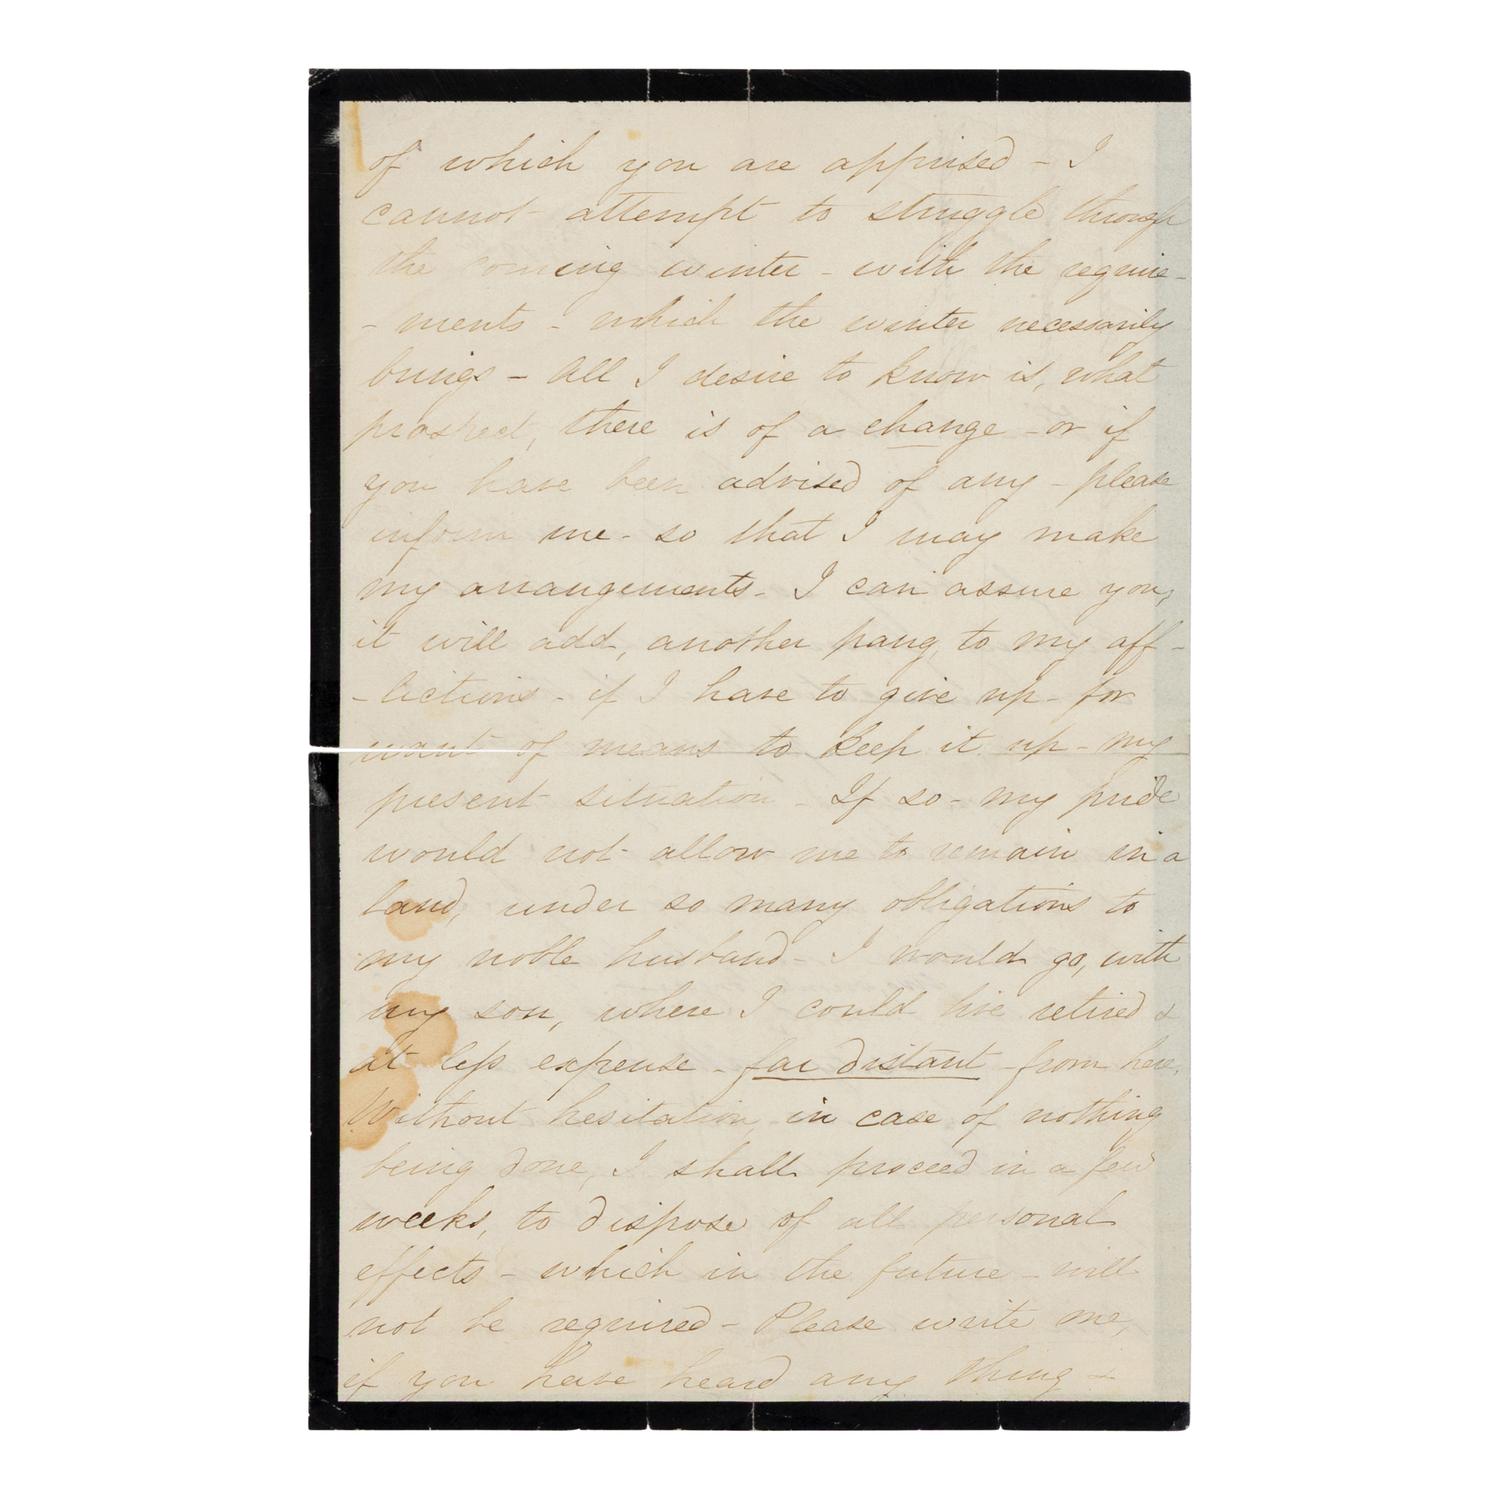 of which you are apprised - I
cannot attempt to struggle through
the coming winter - with the require-
- ments - which the winter necessarily
brings - All I desire to know is, what
prospect, there is of a change - or if
you have been advised of any - please
inform me - so that I may make
my arrangements - I can assure you,
it will add, another pang, to my aff-
- lictions - if I have to give up - for
want of means to keep it up - my
present situation - If so - my pride
would not allow me to remain in a
land, under so many obligations to
my noble husband - I would go, with
my son, where I could live retired &
at less expense - far distant - from here,
Without hesitation, in case of nothing
being done, I shall proceed in a few
weeks, to dispose of all personal
effects - which in the future - will
not be required - Please write me,
if you have heard any thing &